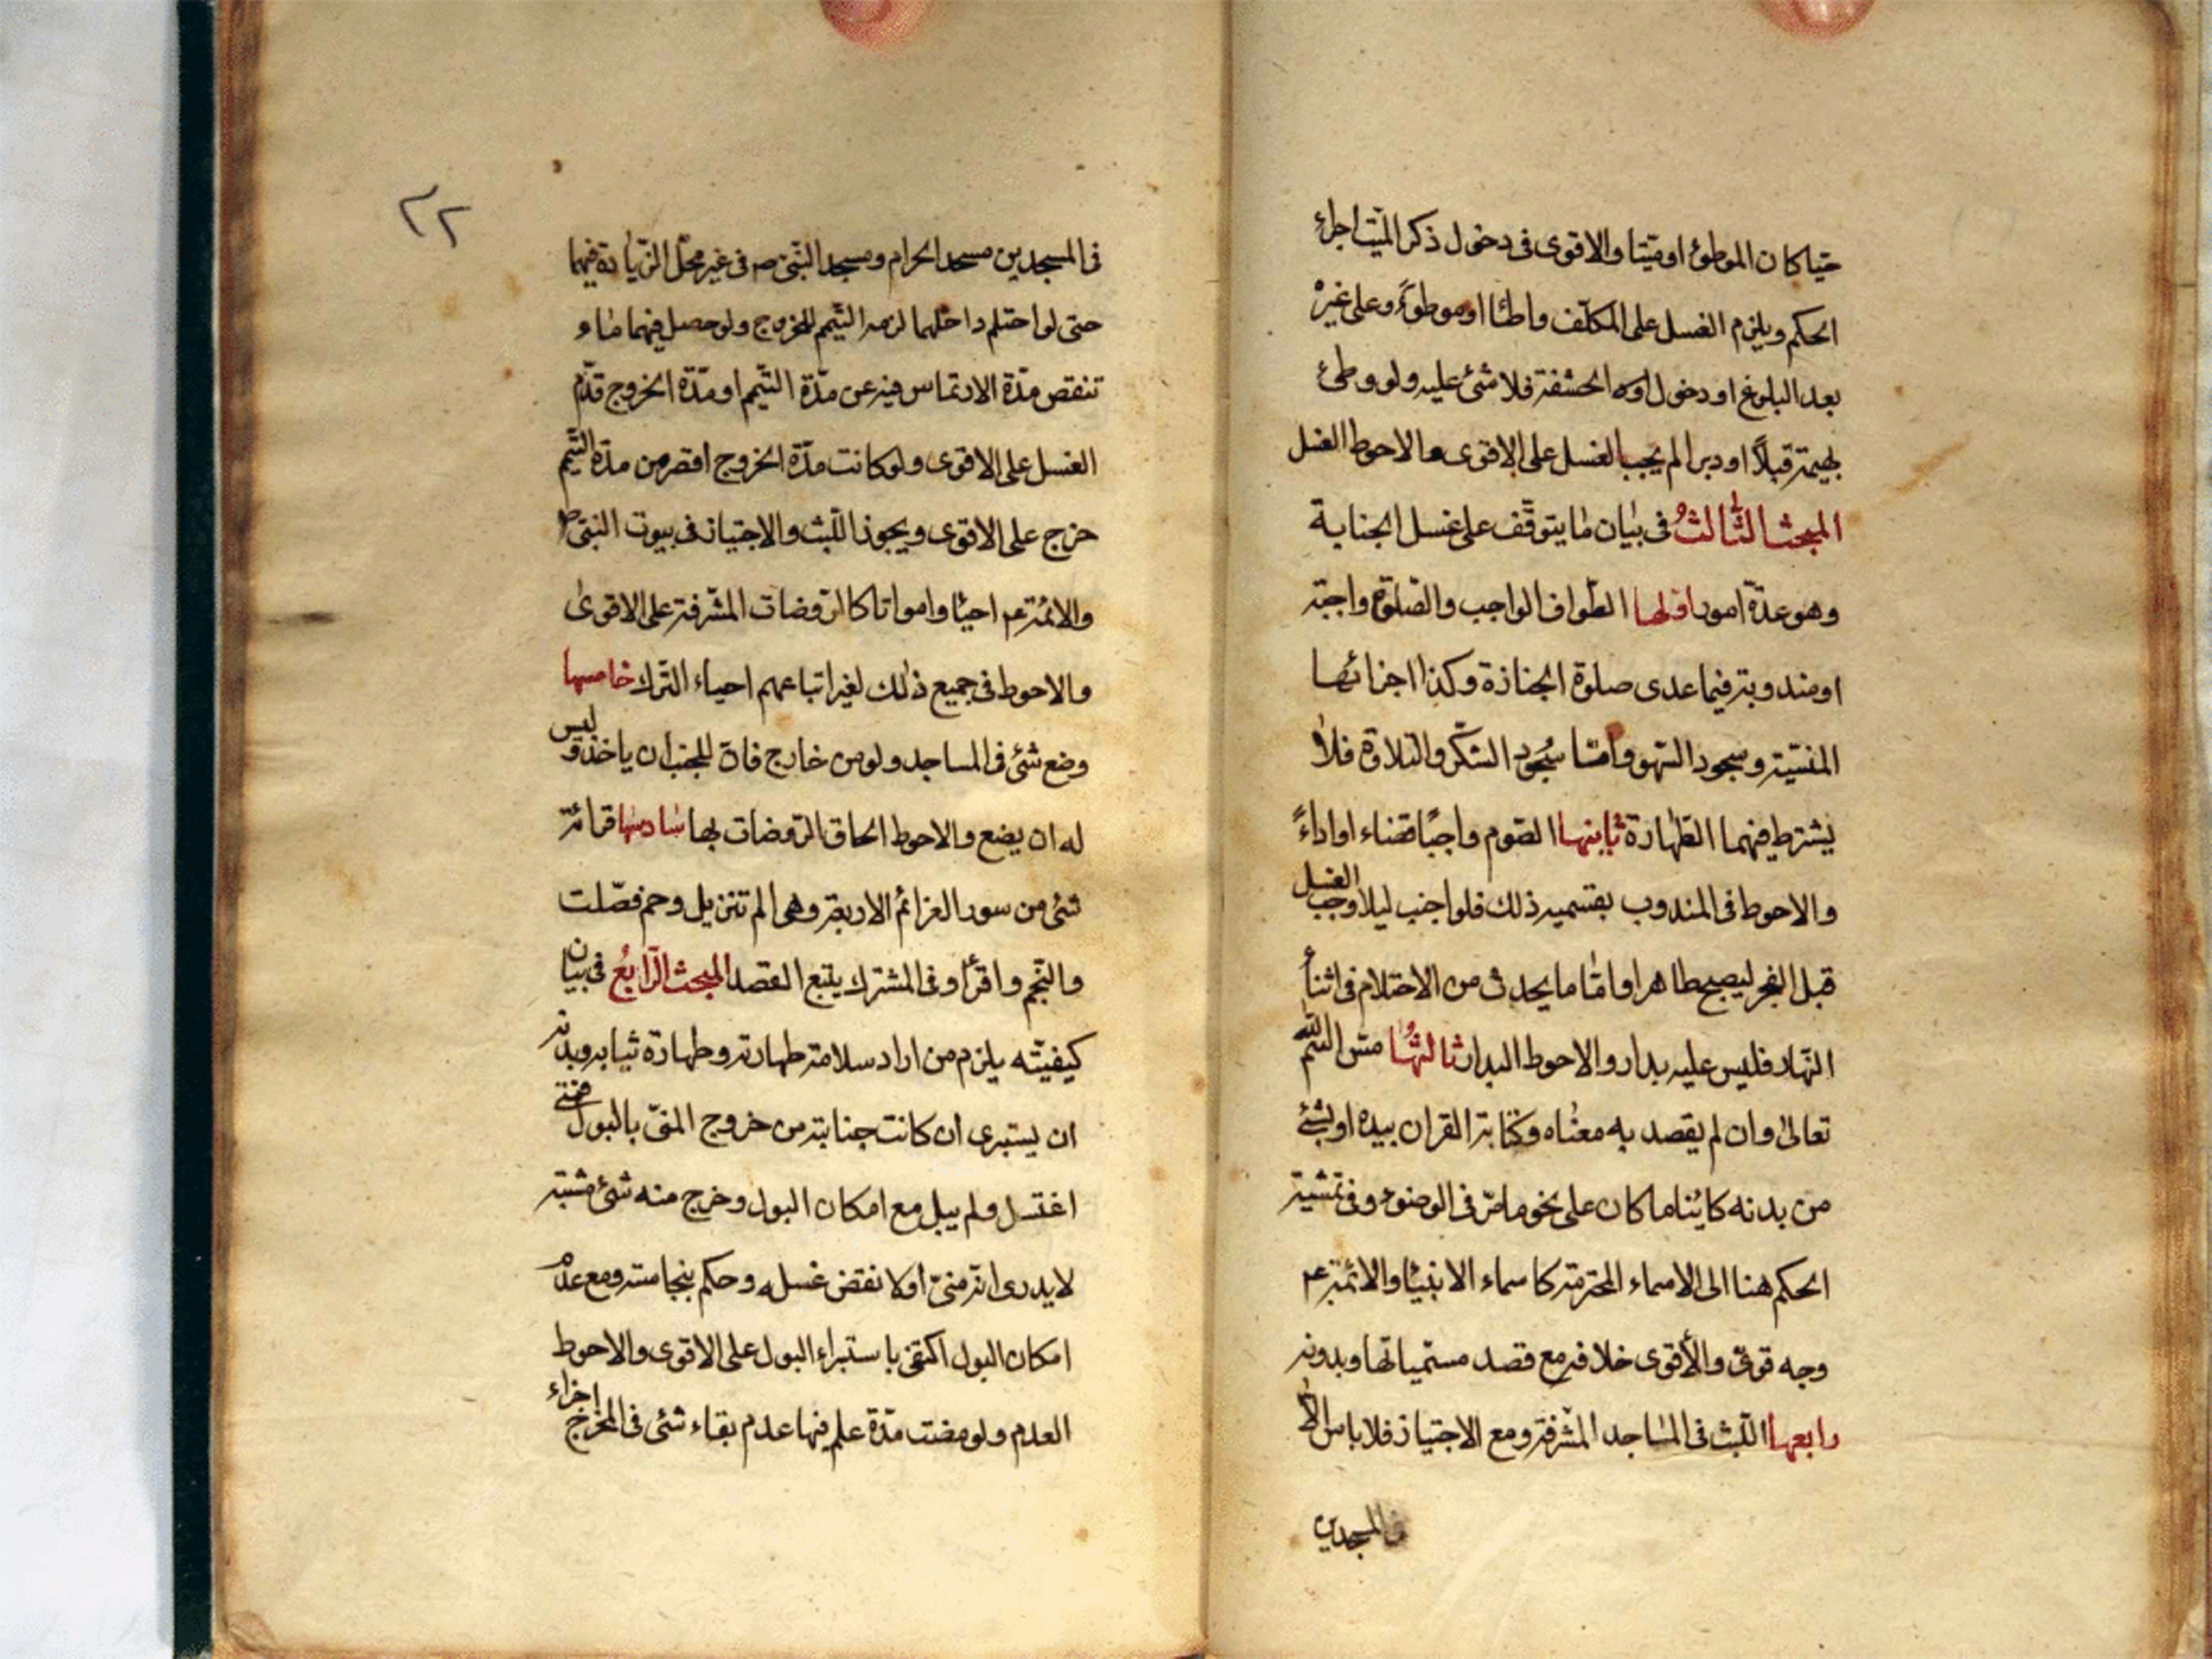 حيّا كان الموطوء او ميّتا والاقوى فى دخول ذكر الميّت اجراء
الحكم ويلزم الغسل على المكلّف واطئا او موطوءً وعلى غيره
بعد البلوغ او دخول الحشفة فلا شئ عليه ولو وطئ
بهيمة قبلاً او دبرا لم يجب الغسل على الاقوى والاحوط الغسل
المبحث الثالثُ فى بيان ما يتوقّف على غسل الجنابة
وهو عدّة امور اوّلها الطواف الواجب والصّلوة واجبة
او مندوبة فيما عدى صلوة الجنازة وكذا اجزائها
المنسيّة وسجود السّهو وامّا سُجُود الشّكر والتلاوة فلا
يشترط فيهما الطّهارة ثانيها الصّوم واجبًا قضاء او اداءً
والاحوط فى المندوب بقسميه ذلك فلو اجنب ليلا وجب الغسل
قبل الفجر ليصبح طاهرا وامّا ما يحدث من الاحتلام فى اثناء
النّهار فليس عليه بدار والاحوط البدار ثالثُها مسّ اسم اللّه
تعالى وان لم يقصد به معناه وكتابة القران بيده او بشئ
من بدنه كائنا ما كان على نحو ما مرّ فى الوضوء وفى تمشية
الحكم هنا الى الاسماء المحترمة كاسماء الانبيا والائمّة ع
وجه قوىّ والأقوى خلافه مع قصد مسمّياتها وبدونه
رابعها اللّبث فى المساجد المشّرفة ومع الاجتياز فلا باس الاّ
فى المسجدين
٢٢
فى المسجدين مسجد الحرام ومسجد النّبى ص فى غير محلّ الزيادة فيهما
حتى لو احتلم داخلهما لزمه التيّمم للخروج ولو حصل فيهما ماء
تنقص مدّة الارتماس فيه عن مدّة التيّمم او مدّة الخروج قدّم
الغسل على الاقوى ولو كانت مدّة الخروج اقصر من مدّة التيّمم
خرج على الاقوى ويجوز اللّبث والاجتياز فى بيوت النبىّ ص
والائمّة ع احيا وامواتا كالرّوضات المشّرفة على الاقوى
والاحوط فى جميع ذلك لغير اتباعهم احياء التّرك خامسها
وضع شئ فى المساجد ولو من خارج فانّ للجنب ان ياخذ وليس
له ان يضع والاحوط الحاق الرّوضات بها سادسها قرائة
شئ من سور العزائم الاربعة وهى الم تنزيل وحم فصّلت
والنّجم واقرأ وفى المشترك يتبع القصد المبحث الرّابعُ فى بيان
كيفيتّه يلزم من اراد سلامة طهارته وطهارة ثيابه وبدنه
ان يستبرى ان كانت جنابته من خروج المنىّ بالبول فمتى
اغتسل ولم يبل مع امكان البول وخرج منه شئ مشتبه
لا يدرى انّه منىّ او لا نقض غسله وحكم بنجاسته ومع عدم
امكان البول اكتفى باستبراء البول على الاقوى والاحوط
العدم ولو مضت مدّة علم فيها عدم بقاء شئ فى المخرج اجزاء